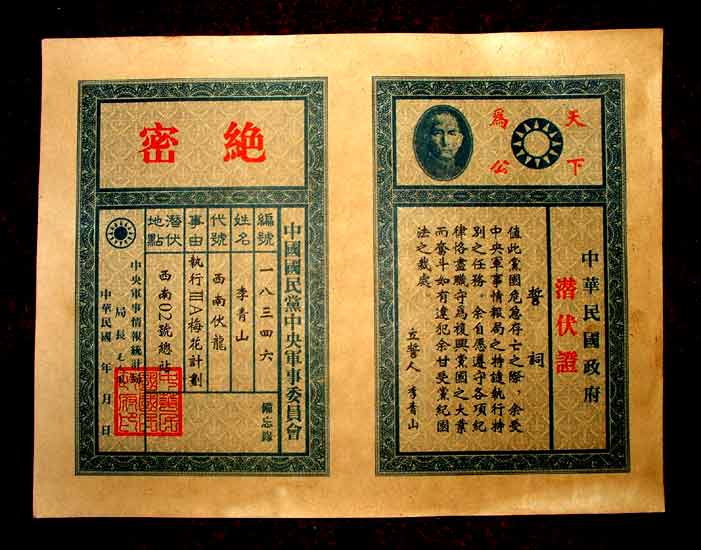 天下
爲公
中華民國政府
潜伏證
誓祠
值此黨國危急存亡之際，余受
中央軍事情報局之特謹執行特
別之任務。余自愿遵守各項紀
律恪盡職守爲復興黨國之大業
而奮斗如有違犯余甘受黨紀國
法之裁處。
立誓人 李青山
絶密
中國國民黨中央軍事委員會
備忘錄
編號 一八三四六
姓名 李青山
代號 西南伏龍
事由 執行IIIA梅花計劃
潜伏地點 西南02號總站
中央軍事情報統計局
局長
中華民國 年 月 日